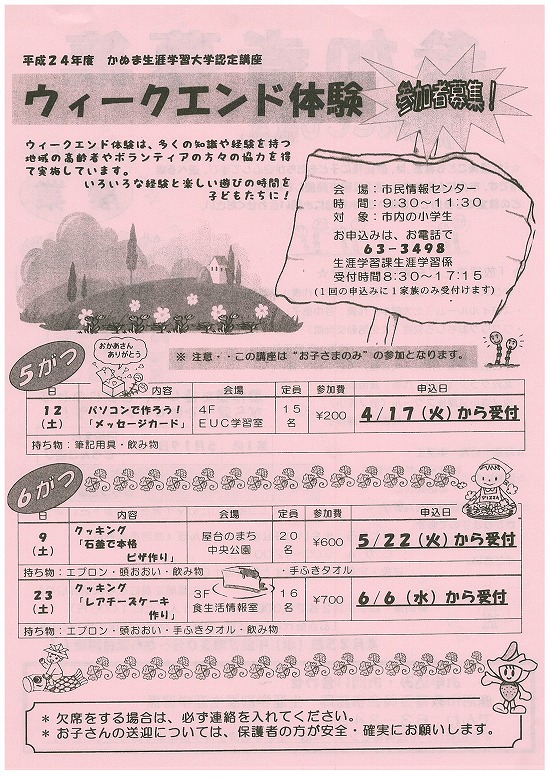 平成24年度　かぬま生涯学習大学認定講座
ウィークエンド体験
参加者募集！
ウィークエンド体験は、多くの知識や経験を持つ
地域の高齢者やボランティアの方々の協力を得
て実施しています。
いろいろな経験と楽しい遊びの時間を
子どもたちに！
会　場：市民情報センター
時　間：9:30～11:30
対　象：市内の小学生
お申込みは、お電話で
63-3498
生涯学習課生涯学習係
受付時間8:30～17:15
(1回の申込みに1家族のみ受付けます)
※ 注意・・この講座は“お子さまのみ”の参加となります。
おかあさん
ありがとう
5がつ
日　内容　会場　定員　参加費　申込日
12
(土)
パソコンで作ろう！
「メッセージカード」
4F
EUC学習室
15
名
¥200
4/17(火)から受付
持ち物：筆記用具・飲み物
6がつ
PIZZA
日　内容　会場　定員　参加費　申込日
9
(土)
クッキング
「石釜で本格
ピザ作り」
屋台のまち
中央公園
20
名
¥600
5/22(火)から受付
持ち物：エプロン・頭おおい・飲み物　・手ふきタオル
23
(土)
クッキング
「レアチーズケーキ
作り」
3F
食生活情報室
16
名
¥700
6/6(水)から受付
持ち物：エプロン・頭おおい・手ふきタオル・飲み物
＊ 欠席をする場合は、必ず連絡を入れてください。
＊ お子さんの送迎については、保護者の方が安全・確実にお願いします。